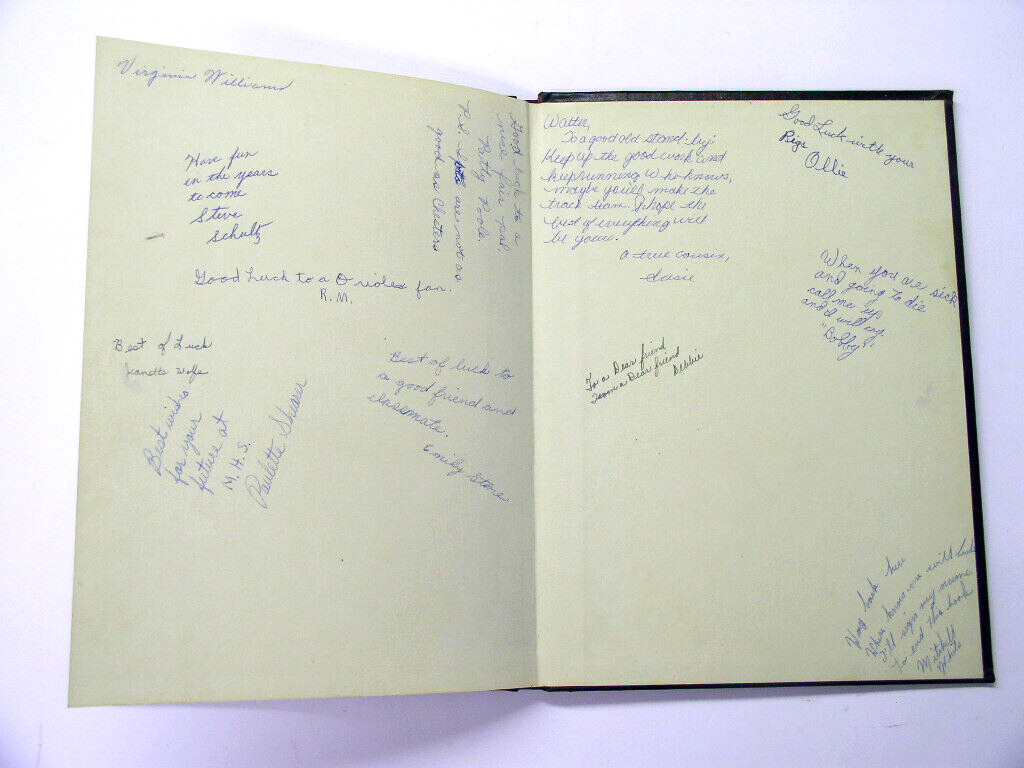 Virginia Williams
Have fun
in the years
to come
Steve
Schultz
Good Luck to a
nice fair pal.
Patty Poole.
P.S. are not as
good as Cheters
Good Luck to a Orioles fan.
R.M.
Best of Luck
Wolfe
Best wishes
for your
future at
M.H.S.
Paulette Shearer
Best of luck to
a good friend and
classmate.
Emily Stone
Walter,
To a good old stand-by.
Keep up the good work and
keep running Who knows,
maybe you'll make the
track team. I hope the
best of everything will
be yours.
A true cousin,
Susie
Good Luck with your
Pigs
Ollie
When you are sick
and going to die
call me up
and I will cry.
"Bobby".
To a Dear friend
From a Dear friend
Debbie
Way back here
Where known one will look
I'll sign my name
To end this book
Mitchell